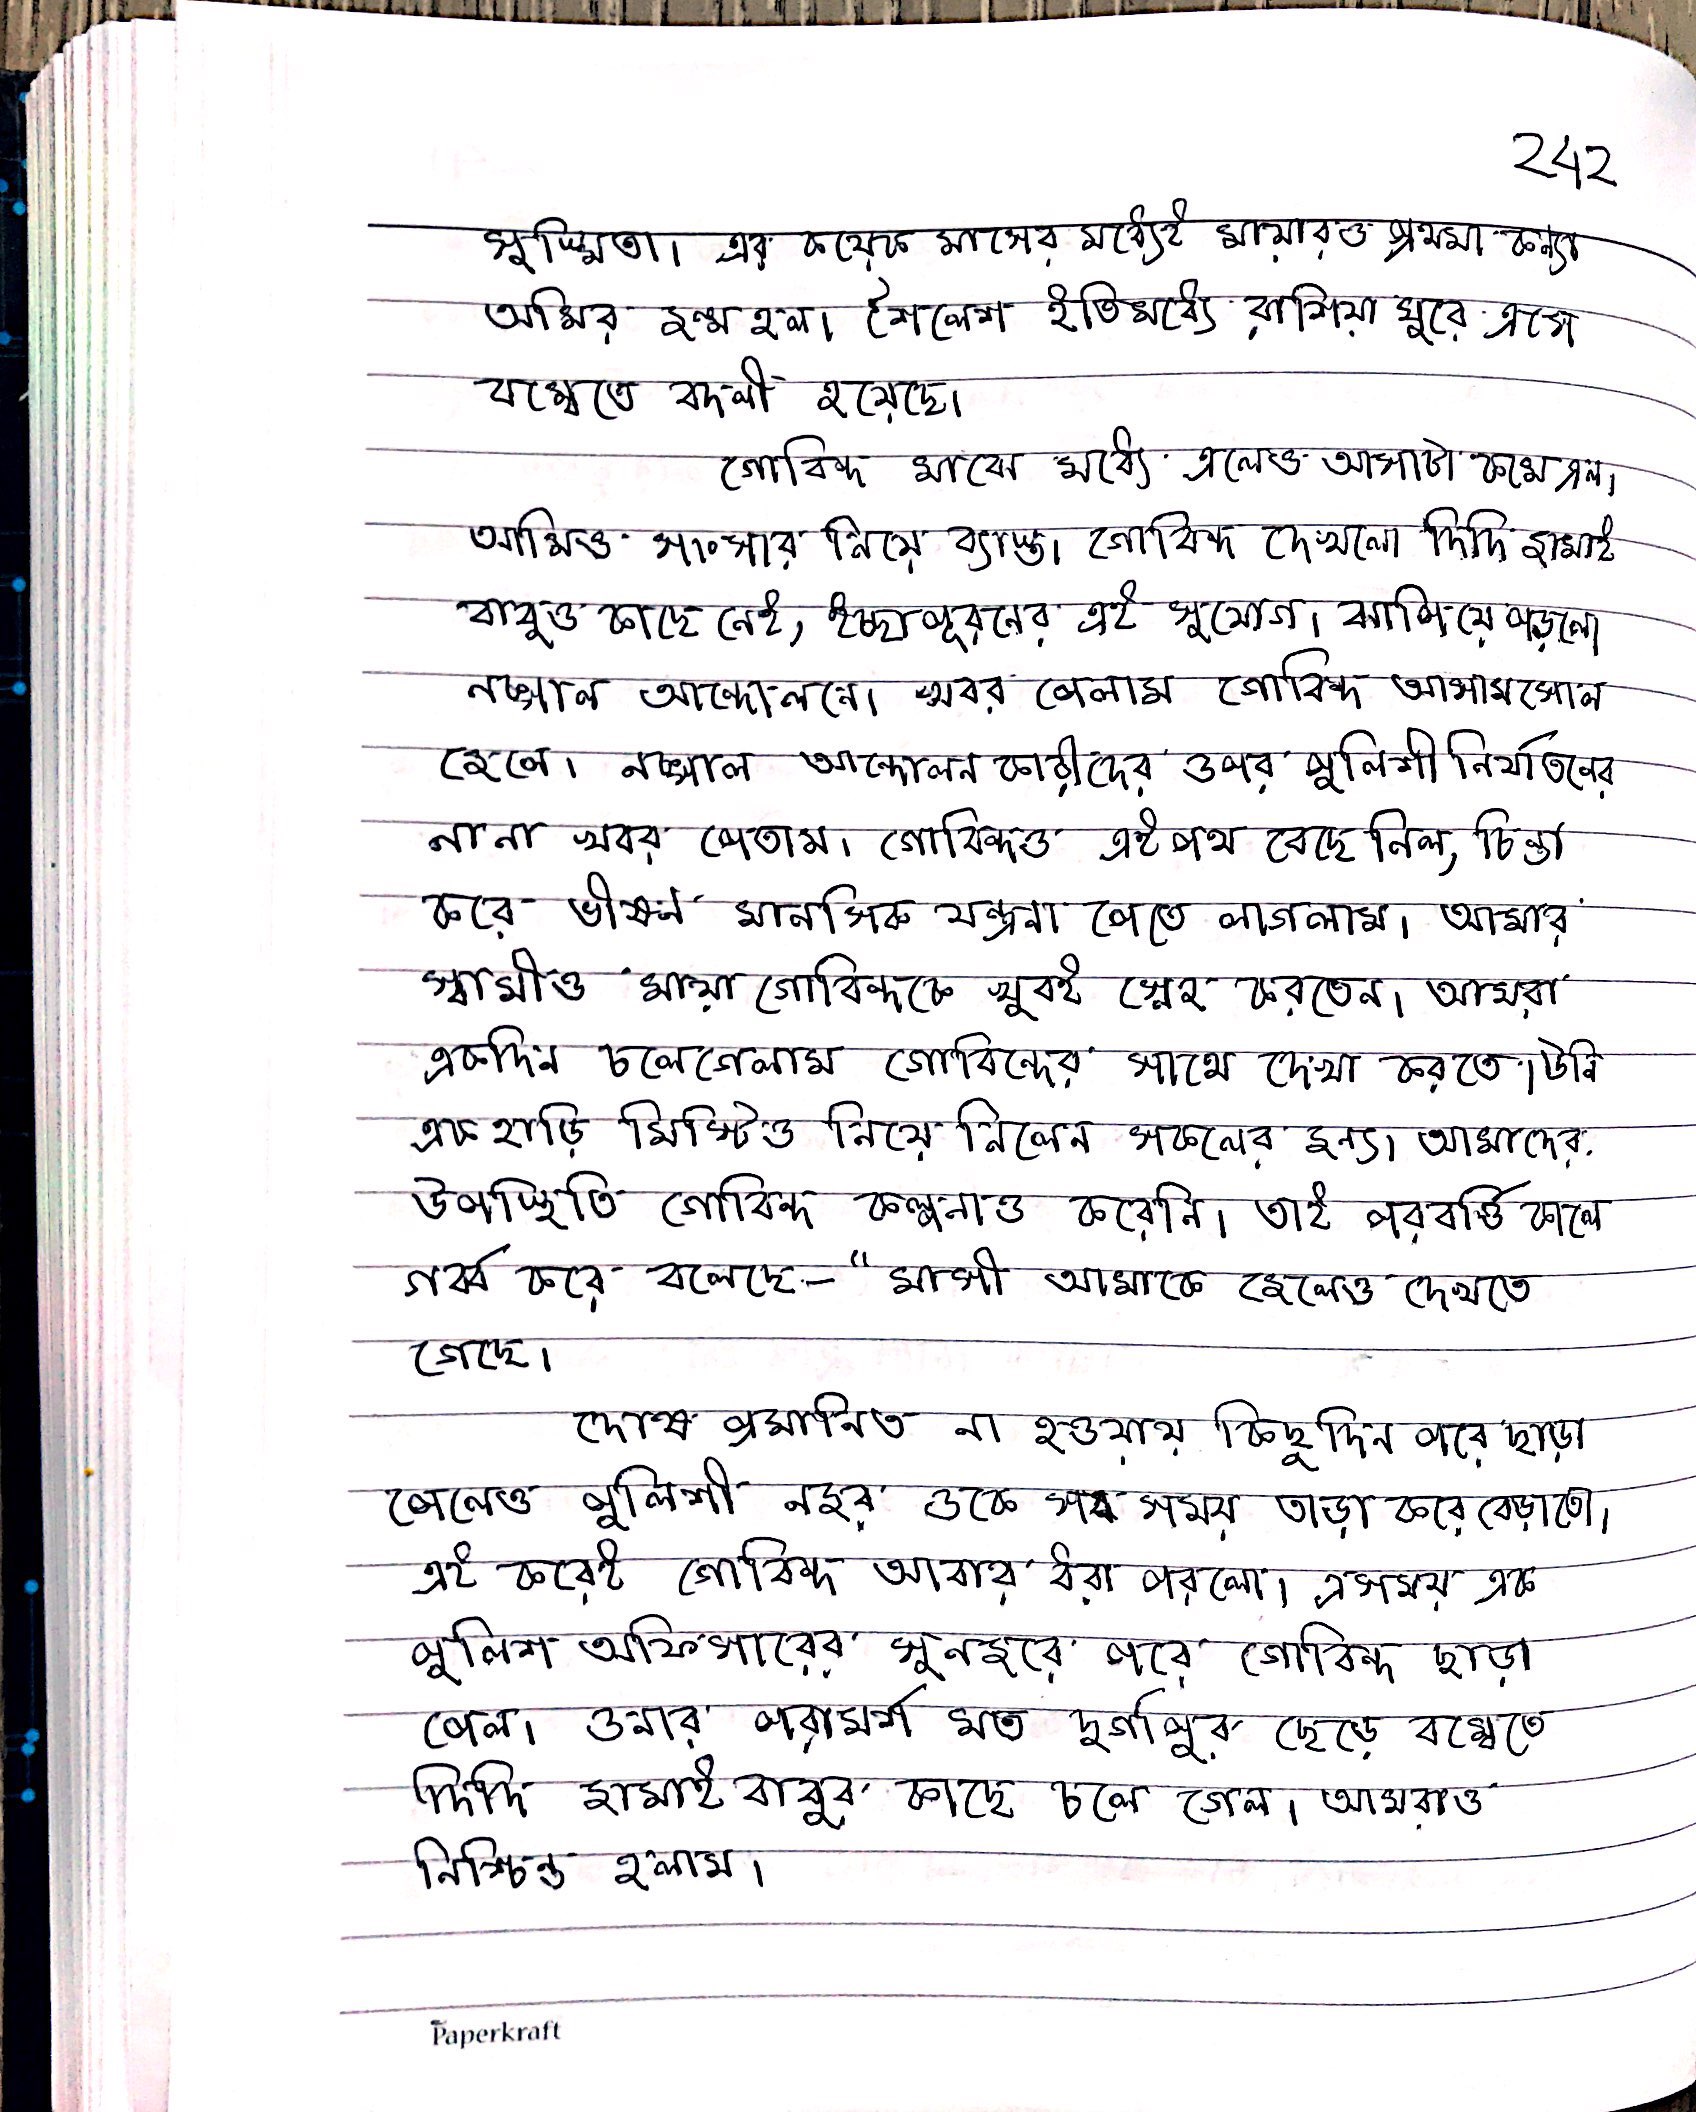 242
সুস্মিতা। এর কয়েক মাসের মধ্যেই মায়ারও প্রথমা কন্যা
অমির জন্ম হল। শৈলেশ ইতিমধ্যে রাশিয়া ঘুরে এসে
বম্বেতে বদলী হয়েছে।
গোবিন্দ মাঝে মধ্যে এলেও আসাটা কমে এল।
আমিও সংসার নিয়ে ব্যাস্ত। গোবিন্দ দেখলো দিদি জামাই
বাবুও কাছে নেই, ইচ্ছাপূরনের এই সুযোগ। ঝাপিয়ে পড়লো
নক্সাল আন্দোলনে। খবর পেলাম গোবিন্দ আসামসোল
জেলে। নক্সাল আন্দোলন কারীদের ওপর পুলিশী নির্যাতনের
নানা খবর পেতাম। গোবিন্দও এইপথ বেছে নিল, চিন্তা
করে ভীষন মানসিক যন্ত্রনা পেতে লাগলাম। আমার
স্বামীও মায়া গোবিন্দকে খুবই স্নেহ করতেন। আমরা
একদিন চলেগেলাম গোবিন্দের সাথে দেখা করতে। উনি
এক হাড়ি মিস্টিও নিয়ে নিলেন সকলের জন্য। আমাদের
উপস্থিতি গোবিন্দ কল্পনাও করেনি। তাই পরবর্ত্তি কালে
গর্ব্ব করে বলেছে – "মাসী আমাকে জেলেও দেখতে
গেছে।
দোষ প্রমানিত না হওয়ায় কিছু দিন পরে ছাড়া
পেলেও পুলিশী নজর ওকে সব সময় তাড়া করে বেড়াতো।
এই করেই গোবিন্দ আবার ধরা পরলো। এসময় এক
পুলিশ অফিসারের সুনজরে পরে গোবিন্দ ছাড়া
পেল। ওনার পরামর্শ মত দুর্গাপুর ছেড়ে বম্বেতে
দিদি জামাই বাবুর কাছে চলে গেল। আমরাও
নিশ্চিন্ত হলাম।
Paperkraft